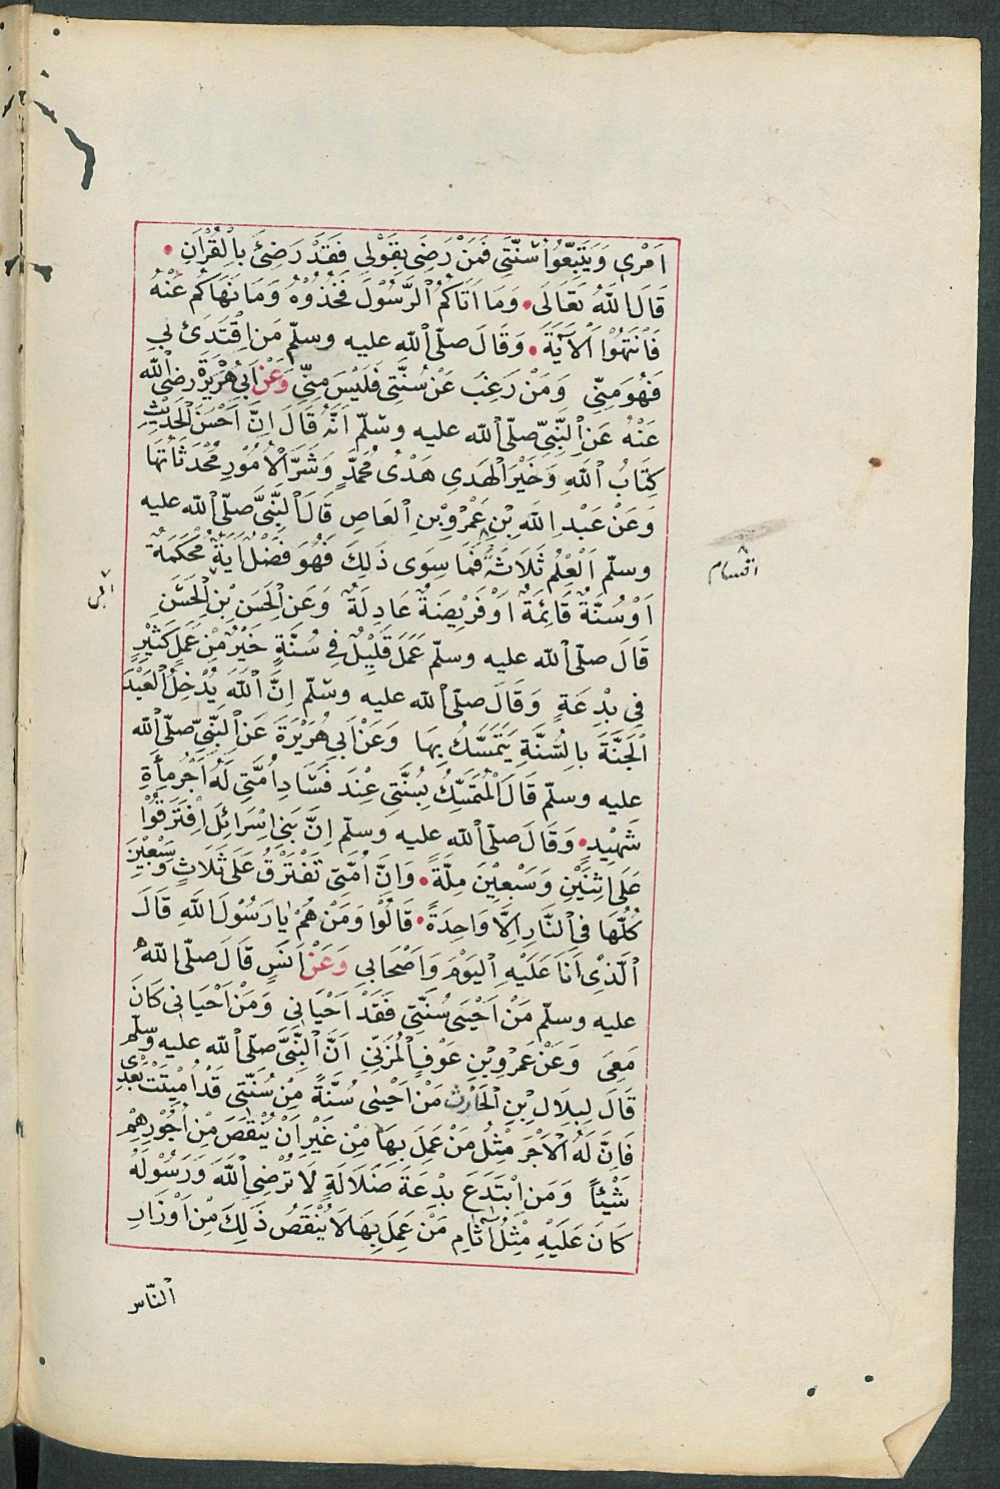 اَمْرِي وَيَتَبِعُّوا سُنَّتِي فَمَنْ رَضِيَ بِقَوْلِي فَقَدْ رَضِيَ بِالْقُرْاٰنِ •
قَالَ اللّٰهُ تَعَالَى • وَمَا اٰتَاكُمُ الرَّسُوْلُ فَخُذُوْهُ وَمَا نَهَاكُمْ عَنْهُ
فَانْتَهُوْا الْاٰيَةَ • وَقَالَ صلّى الله عليه وسلّم مَنِ اقْتَدٰى بِي
فَهُوَ مِنِّي وَمَنْ رَغِبَ عَنْ سُنَّتِي فَلَيْسَ مِنِّي وَعَنْ اَبِي هُرَيْرَةَ رضى الله
عَنْهُ عَنِ النَّبِيِّ صلّى الله عليه وسلّم اَنَّهُ قَالَ اِنَّ اَحْسَنَ الْحَدِيْثِ
كِتَابُ اللّٰهِ وَخَيْرَ الْهَدىِ هَدْىُ مُحَمَّدٍ وَشَرَّ الْاُمُوْرِ مُحْدَثَاتُهَا
وَعَنْ عَبْدِ اللّٰهِ بْنِ عَمْرِو بْنِ الْعَاصِ قَالَ النَّبِيُّ صلّى الله عليه
وسلّم اَلْعِلْمُ ثَلَاثَةٌ فَمَا سِوَى ذٰلِكَ فَهُوَ فَضْلٌ اٰيَةٌ مُحْكَمَةٌ
اَوْ سُنَّةٌ قَائِمَةٌ اَوْ فَرِيْضَةٌ عَادِلَةٌ وَعَنِ الْحَسَنِ بْنِ الْحَسَنِ
قَالَ صلّى الله عليه وسلّم عَمَلٌ قَلِيْلٌ فِي سُنَّةٍ خَيْرٌ مِنْ عَمَلٍ كَثِيْرٍ
فِي بِدْعَةٍ وَقَالَ صلّى الله عليه وسلّم اِنَّ اللّٰهَ يُدْخِلُ الْعَبْدَ
الْجَنَّةَ بِالسُّنَّةِ يَتَمَسَّكُ بِهَا وَعَنْ اَبِي هُرَيْرَةَ عَنِ النَّبِيِّ صلّى الله
عليه وسلّم قَالَ الْمُتَمَسِّكُ بِسُنَّتِي عِنْدَ فَسَادِ اُمَّتِي لَهُ اَجْرُ مِأَةِ
شَهِيْدٍ • وَقَالَ صلّى الله عليه وسلّم اِنَّ بَنِي اِسْرَائِلَ افْتَرَقُوْا
عَلَى اثْنَيْنِ وَسَبْعِيْنَ مِلَّةً • وَاِنَّ اُمَّتِي تَفْتَرِقُ عَلَى ثَلَاثٍ وَسَبْعِيْنَ
كُلُّهَا فِي النَّارِ اِلَّا وَاحِدَةً • قَالُوْا وَمَنْ هُمْ يَا رَسُوْلَ اللّٰهِ قَالَ
الَّذِيْ اَنَا عَلَيْهِ الْيَوْمَ وَاَصْحَابِي وَعَنْ اَنَسٍ قَالَ صلّى الله
عليه وسلّم مَنْ اَحْيٰى سُنَّتِي فَقَدْ اَحْيَانِي وَمَنْ اَحْيَانِي كَانَ
مَعِىَ وَعَنْ عَمْرِو بْنِ عَوْفِ الْمُزَنِّي اَنَّ النَّبِيَّ صلّى الله عليه وسلّم
قَالَ لِبِلَالِ بْنِ الْحَارِثِ مَنْ اَحْيٰى سُنَّةً مِنْ سُنَّتِي قَدْ اُمِيْتَتْ بَعْدِى
فَاِنَّ لَهُ الْاَجْرَ مِثْلُ مَنْ عَمِلَ بِهَا مِنْ غَيْرِ اَنْ يُنْقَصَ مِنْ اُجُوْرِهِمْ
شَيْئًا وَمَنِ ابْتَدَعَ بِدْعَةَ ضَلَالَةٍ لَا تُرْضِي اللّٰهَ وَرَسُوْلَهُ
كَانَ عَلَيْهِ مِثْلُ اٰثَامِ مَنْ عَمِلَ بِهَا لَا يُنْقَصُ ذٰلِكَ مِنْ اَوْزَارِ
النَّاس
اقسام